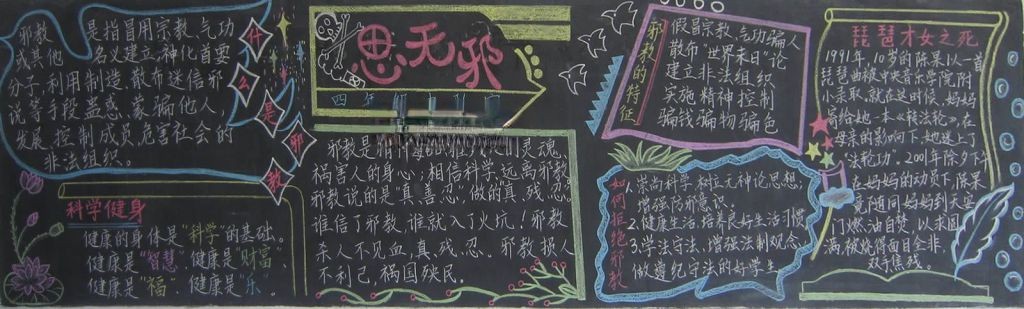 什么是邪教
邪教是指冒用宗教、气功
或其他名义建立、神化首要
分子,利用制造、散布迷信邪
说等手段蛊惑、蒙骗他人,
发展、控制成员,危害社会的
非法组织。
科学健身
健康的身体是“科学”的基础。
健康是“智慧”,健康是“财富”、
健康是“福”,健康是“乐”。
思无邪
四年
邪教是指
灵魂,
祸害人的身心;相信科学,远离邪教。
邪教说的是真、善、忍,做的真、残、忍。
谁信了邪教,谁就入了火坑!邪教
杀人不见血,真、残、忍。邪教损人
不利己,祸国殃民。
邪教的特征
假冒宗教、气功骗人
散布“世界末日”论
建立非法组织
实施精神控制
骗钱骗物骗色
如何拒绝邪教
崇尚科学 树立无神论思想,
增强防邪意识。
2.健康生活,培养良好生活习惯
3.学法守法、增强法制观念,
做遵纪守法的好学生
琵琶才女之死
1991年,10岁的陈果以一首
琵琶曲被中央音乐学院附
小录取。就在这时候,妈妈
寄给她一本《转法轮》。在
母亲的影响下,她迷上了
“法轮功”。2001年除夕下午
在妈妈的动员下,陈果
竟随同妈妈到天安
门燃油自焚,以求圆
满,被烧得面目全非
双手焦残。